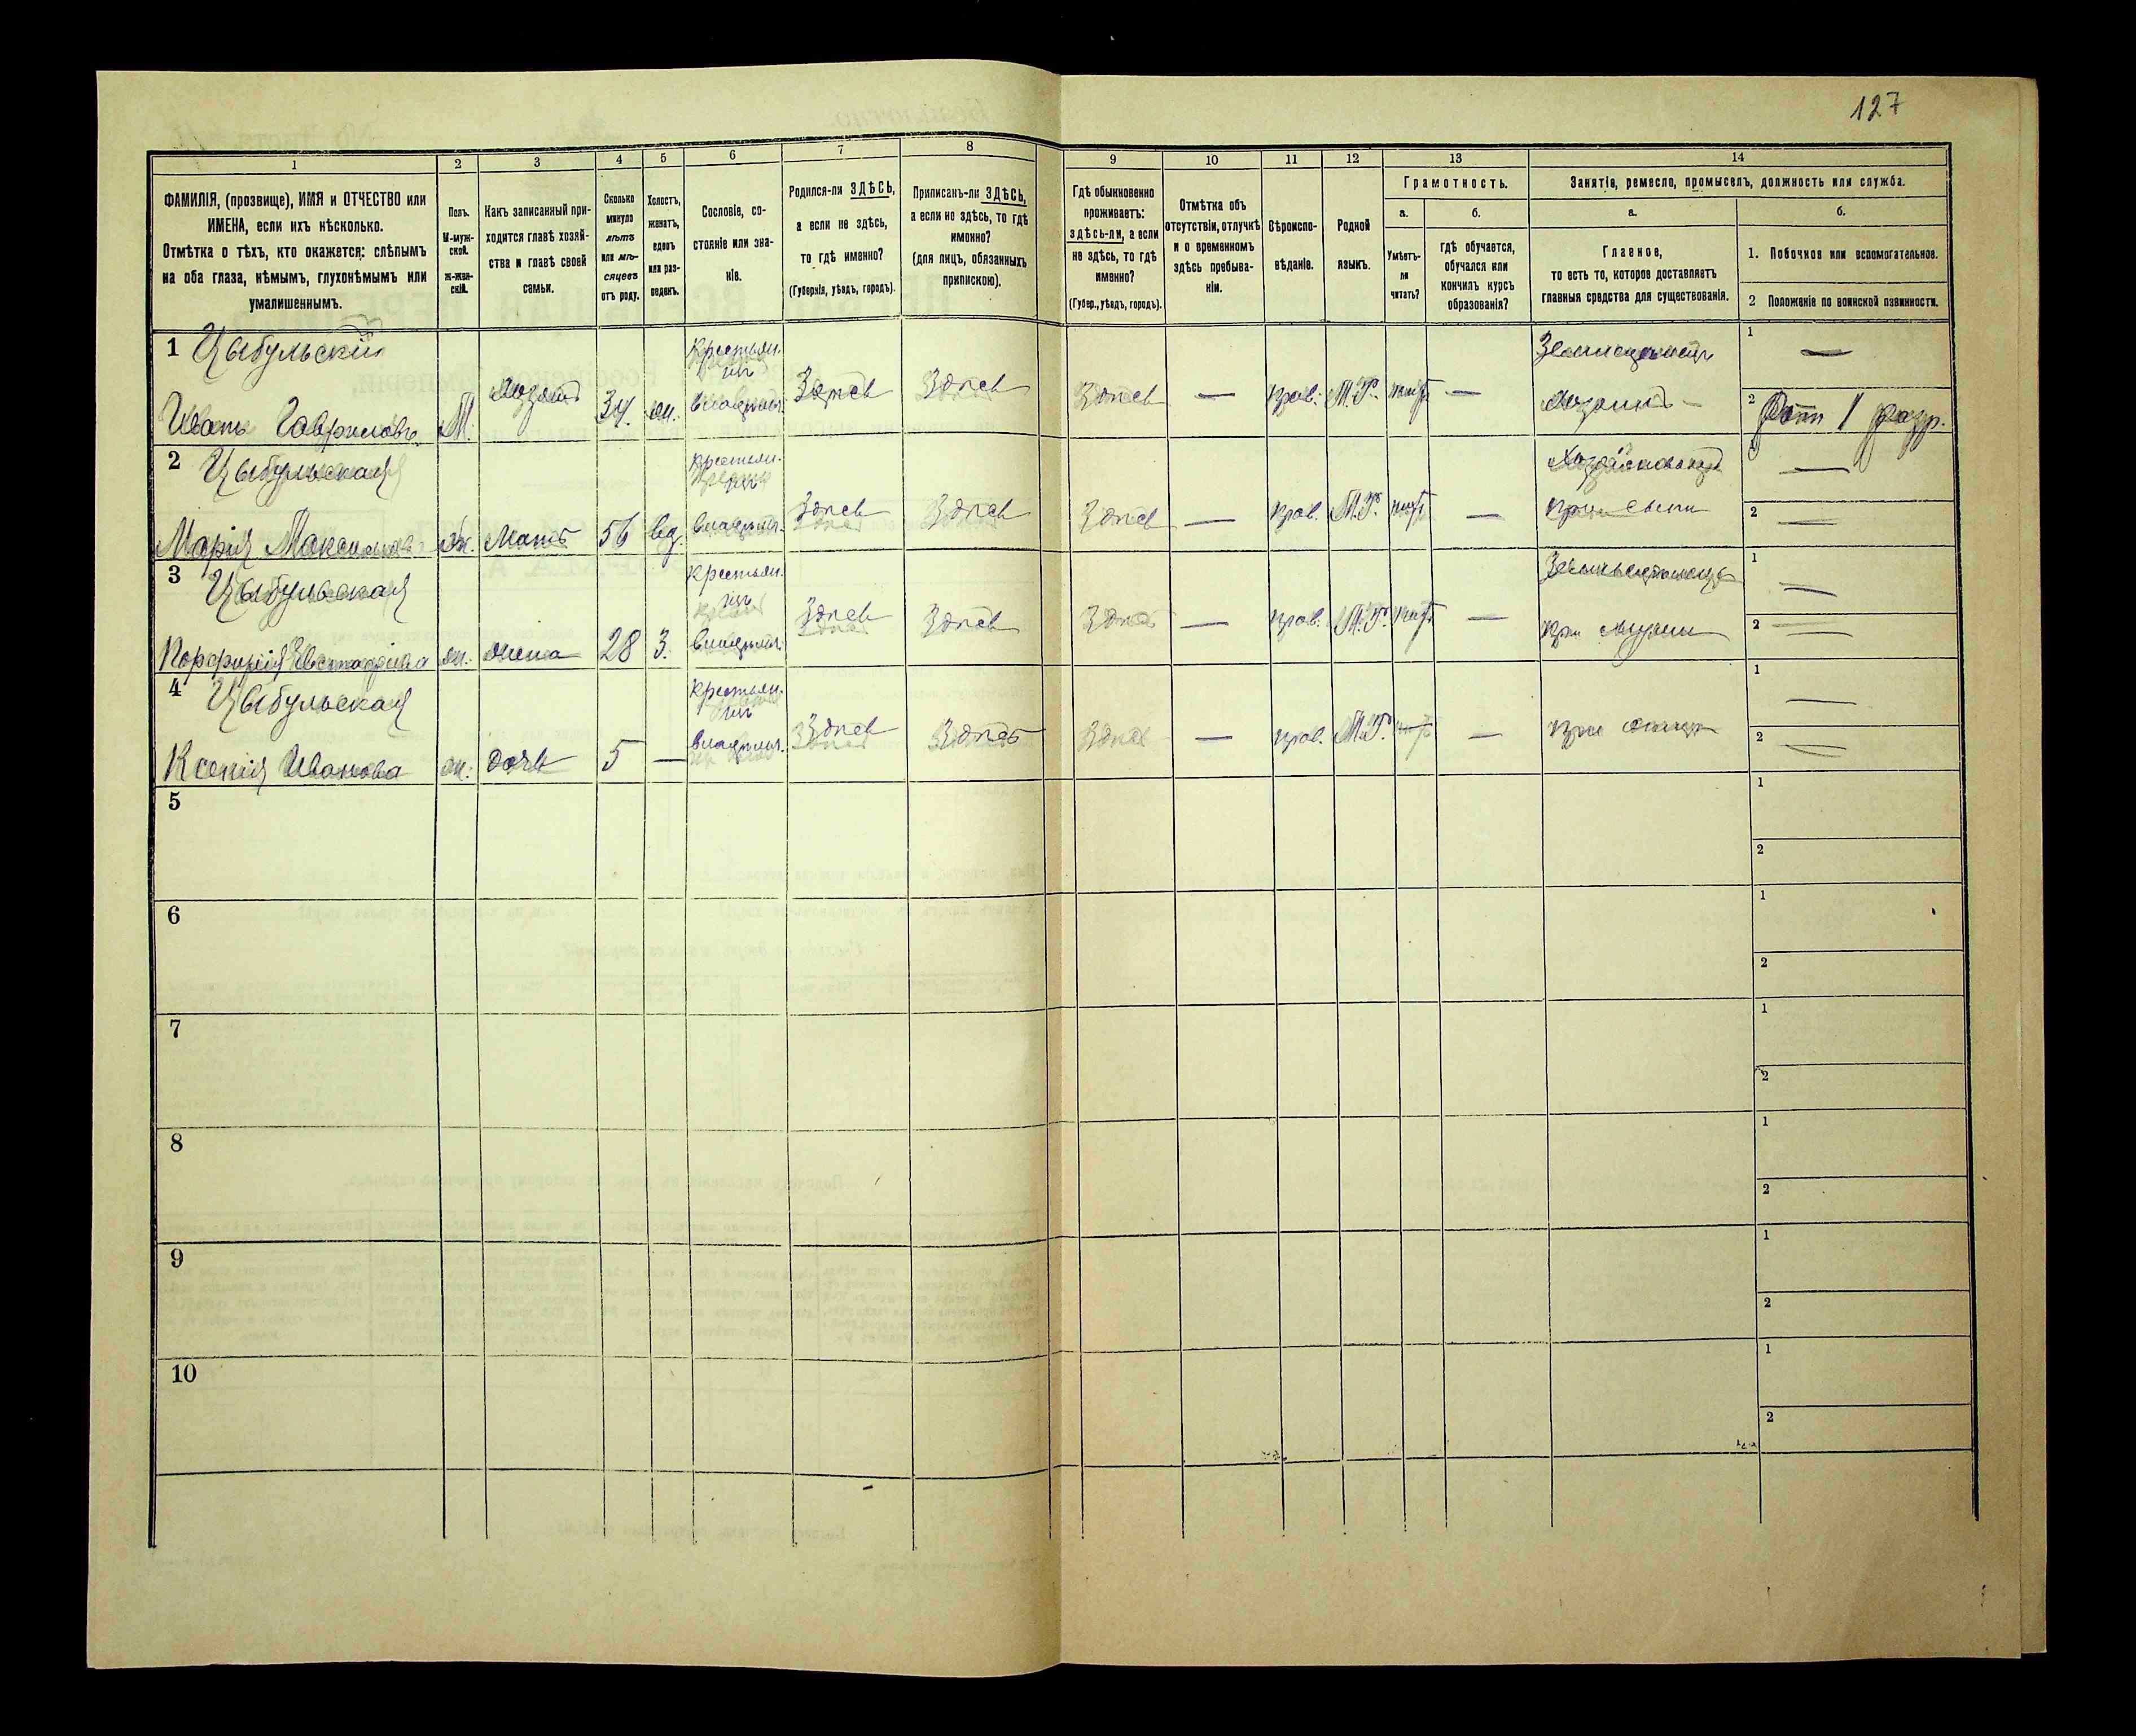 127
1 2 3 4 5 6 7 8 9 10 11 12 13 14
ФАМИЛІЯ, (прозвище), ИМЯ и ОТЧЕСТВО или
ИМЕНА, если ихъ нѣсколько.
Отмѣтка о тѣхъ, кто окажется: слѣпымъ
на оба глаза, нѣмымъ, глухонѣмымъ или
умалишеннымъ.
Полъ.
М-муж-
ской.
ж-жен-
скій.
Какъ записанный при-
ходится главѣ хозяй-
ства и главѣ своей
семьи.
Сколько
минуло
лѣтъ
или мѣ-
сяцевъ
отъ роду.
Холостъ,
женатъ,
вдовъ
или раз-
веденъ.
Сословіе, со-
стояніе или зва-
ніе.
Родился-ли ЗДѢСЬ,
а если не здѣсь,
то гдѣ именно?
(Губернія, уѣздъ, городъ).
Приписанъ-ли ЗДѢСЬ,
а если не здѣсь, то гдѣ
именно?
(для лицъ, обязанныхъ
припискою).
Гдѣ обыкновенно
проживаетъ:
здѣсь-ли, а если
не здѣсь, то гдѣ
именно?
(Губер., уѣздъ, городъ).
Отмѣтка объ
отсутствіи, отлучкѣ
и о временномъ
здѣсь пребыва-
ніи.
Вѣроиспо-
вѣданіе.
Родной
языкъ.
Грамотность.
а.
Умѣетъ-
ли
читать?
б.
Гдѣ обучается,
обучался или
кончилъ курсъ
образованія?
Занятіе, ремесло, промыселъ, должность или служба.
а.
Главное,
то есть то, которое доставляетъ
главныя средства для существованія.
б.
1. Побочное или вспомогательное.
2 Положеніе по воинской повинности.
1 Цыбульскій Крестьян. Земледѣлецъ 1 —
инъ
Иванъ Гавриловъ М. хозяинъ 34 ж. владѣльч. Здѣсь Здѣсь Здѣсь — прав. М.Р. нѣтъ — хозяинъ — 2 Ратн 1 разр.
2 Цыбульская Крестьян. 1 —
Марія Максимова ж. Мать 56 вд. владѣльч. Здѣсь Здѣсь Здѣсь — прав. М.Р. нѣтъ — при сынѣ 2 —
3 Цыбульская Крестьян. 1 —
ж. жена 28 З. владѣльч. Здѣсь Здѣсь Здѣсь — прав. М.Р. нѣтъ — при мужѣ 2 —
4 Цыбульская Крестьян. 1 —
Ксенія Иванова ж. дочь 5 — владѣльч. Здѣсь Здѣсь Здѣсь — прав. М.Р. нѣтъ — при отцѣ 2 —
5 1
2
6 1
2
7 1
2
8 1
2
9 1
2
10 1
2